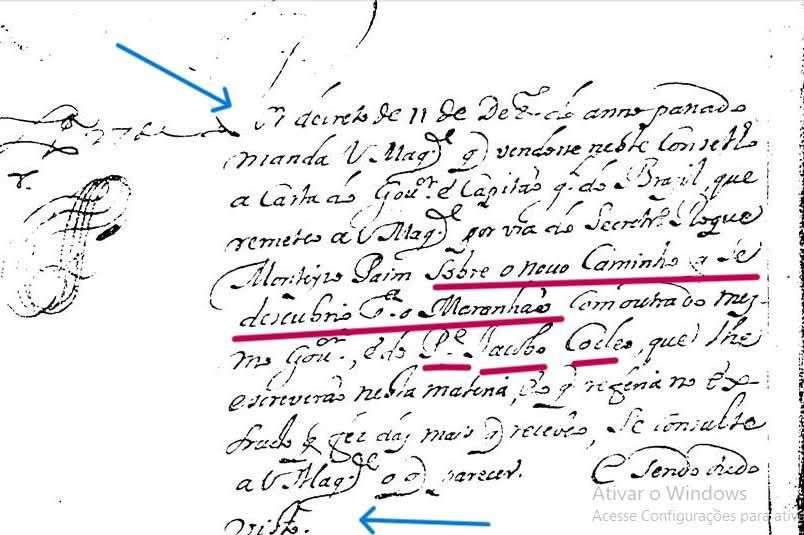 decreto de 11 de Dez.º do anno passado
manda V Mag.de q vendosse neste Conselho
a Carta do Gov.or e Capitão g.l do Brazil, que
remeteo a V Mag.de por via do Secretr.º Roque
Monteyro Paim Sobre o novo Caminho q Se
descubrio p.a o Maranhão Com outra do mes-
mo Gov.or, e do P.e Jacobo Cocleo, que lhe
escreverão nesta materia, e o q referia no ex-
trado q fez das mais q receveo, Se consulte
a V Mag.de o q parecer. E sendo tudo
visto.
Ativar o Windows
Acesse Configurações para ativ